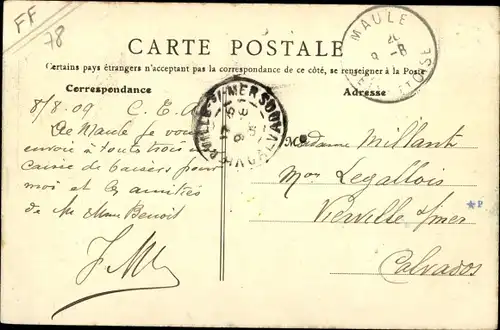 FF
78
MAULE
CARTE POSTALE
Certains pays étrangers n'acceptent pas la correspondance de ce côté, se renseigner à la Poste
Correspondance
Adresse
8/8.09 C.E.A
De Maule je vous
envoie à toutes trois
caisse de baisers pour
moi et les amitiés
de Me Mme Benoit
Madame Millant
Mon Legallois
Vierville s/mer
Calvados